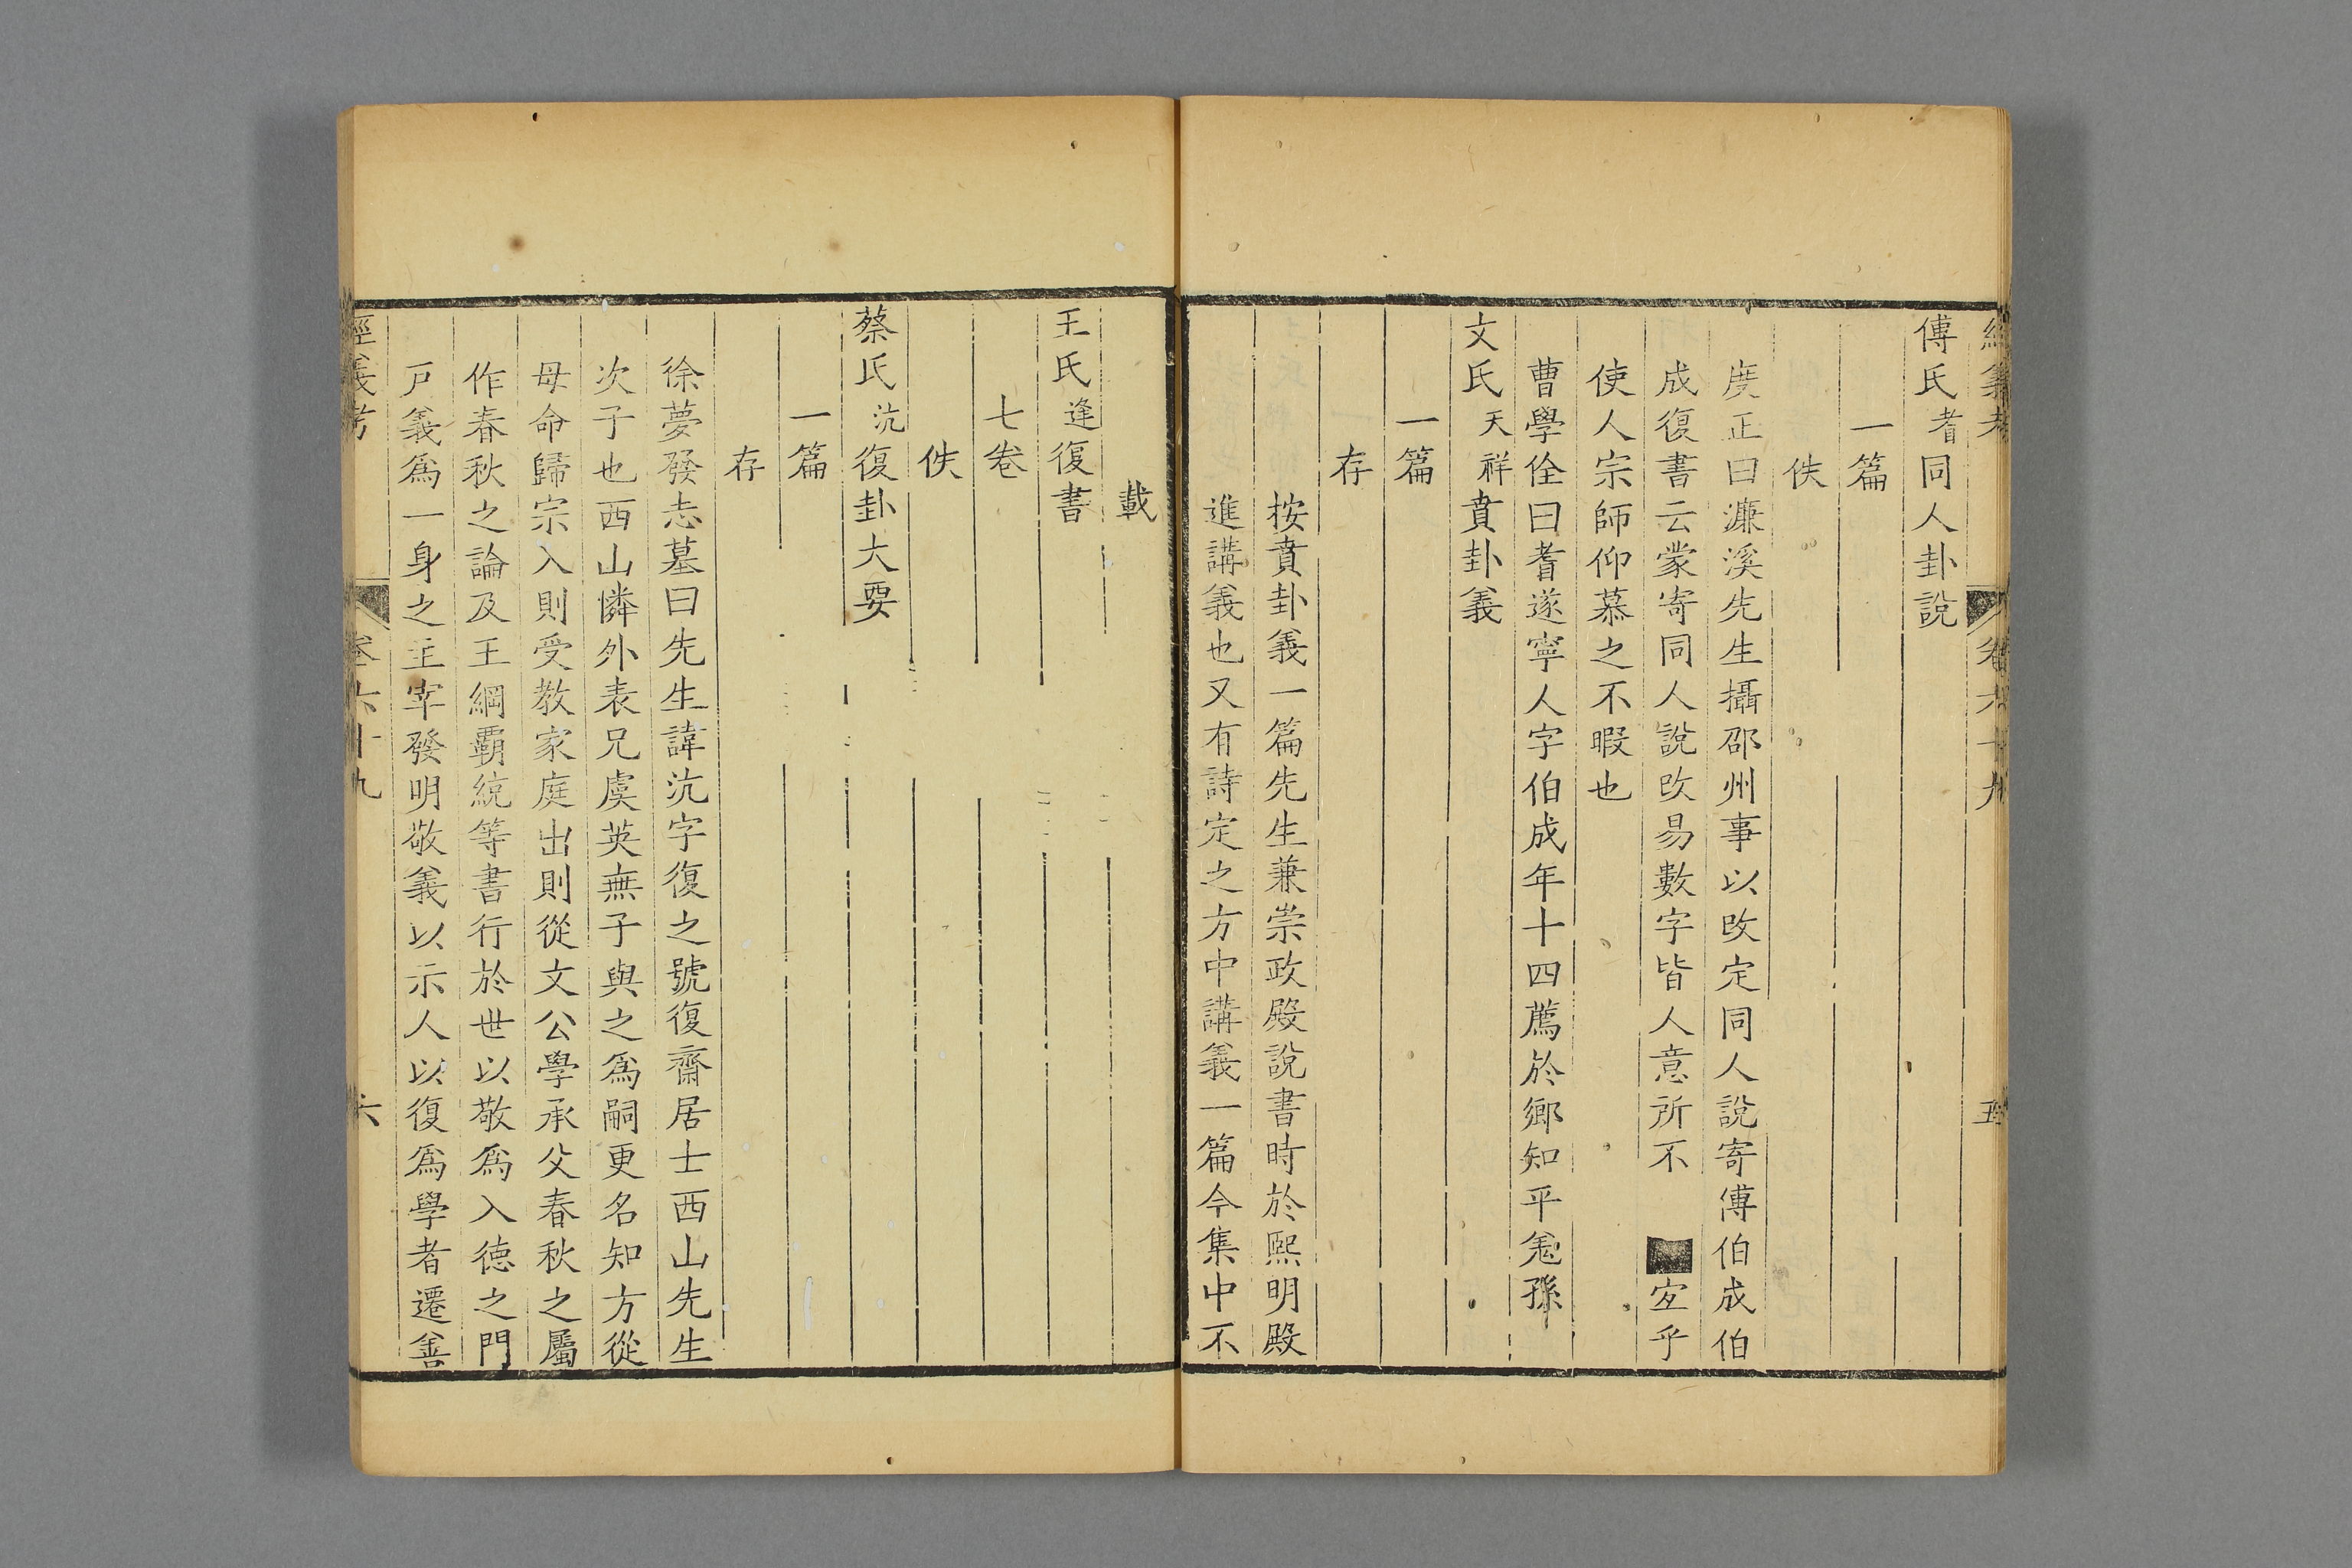 經義考 卷六十九 五
傅氏耆同人卦說
一篇
佚
度正曰濂溪先生攝邵州事以改定同人說寄傅伯成伯
成復書云蒙寄同人說改易數字皆人意所不宐乎
使人宗師仰慕之不暇也
曹學佺曰耆遂寧人字伯成年十四薦於鄉知平
文氏天祥賁卦義
一篇
存
按賁卦義一篇先生兼崇政殿說書時於熙明殿
進講義也又有詩定之方中講義一篇今集中不
載
王氏逢復書
七卷
佚
蔡氏沆復卦大要
一篇
存
徐夢發志墓曰先生諱沆字復之號復齋居士西山先生
次子也西山憐外表兄虞英無子與之爲嗣更名知方從
母命歸宗入則受教家庭出則從文公學承父春秋之屬
作春秋之論及王綱霸統等書行於世以敬爲入德之門
戸義爲一身之主宰發明敬義以示人以復爲學者遷善
經義考 卷六十九 六